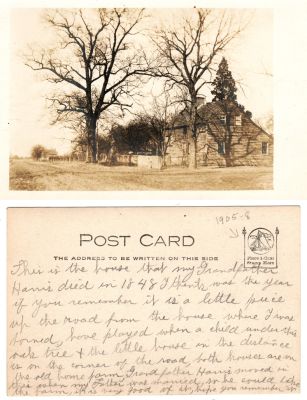 1905-8
POST CARD
THE ADDRESS TO BE WRITTEN ON THIS SIDE
Place a One Cent Stamp Here
This is the house that my Grandfather
Harris died in 1848 I think was the year
if you remember it is a little piece
up the road from the house where I was
borned, have played when a child under this
oak tree & the little house in the distance
is on the corner of the road both houses are on
the old home farm, Grandfather Harris moved in
this when my Father was married, so he could take
the farm, it is very good of it, hope you remember